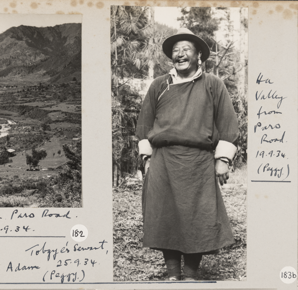 Paro Road.
.9.34.
182
Tobgye's Servant,
Adam 25.9.34
(Peggy.)
Ha
Valley
from
Paro
Road.
19.9.34
(Peggy.)
183b